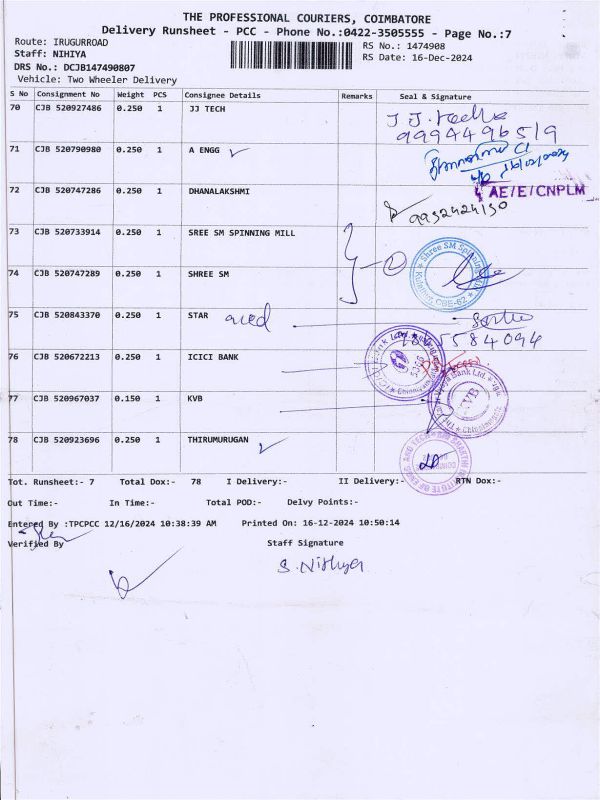 THE PROFESSIONAL COURIERS, COIMBATORE
Delivery Runsheet - PCC - Phone No.:0422-3505555 - Page No.:7
Route: IRUGURROAD
RS No.: 1474908
Staff: NIHIYA
RS Date: 16-Dec-2024
DRS No.: DCJB147490807
Vehicle: Two Wheeler Delivery
S No Consignment No Weight PCS Consignee Details Remarks Seal & Signature
70 CJB 520927486 0.250 1 JJ TECH
9994496519
71 CJB 520790980 0.250 1 A ENGG
AE/E/CNPLM
72 CJB 520747286 0.250 1 DHANALAKSHMI
9932424130
73 CJB 520733914 0.250 1 SREE SM SPINNING MILL
74 CJB 520747289 0.250 1 SHREE SM
75 CJB 520843370 0.250 1 STAR
76 CJB 520672213 0.250 1 ICICI BANK
77 CJB 520967037 0.150 1 KVB
KVB
78 CJB 520923696 0.250 1 THIRUMURUGAN
Tot. Runsheet:- 7 Total Dox:- 78 I Delivery:- II Delivery:- RTN Dox:-
Out Time:- In Time:- Total POD:- Delvy Points:-
Entered By :TPCPCC 12/16/2024 10:38:39 AM Printed On: 16-12-2024 10:50:14
Verified By Staff Signature
S. Nithya